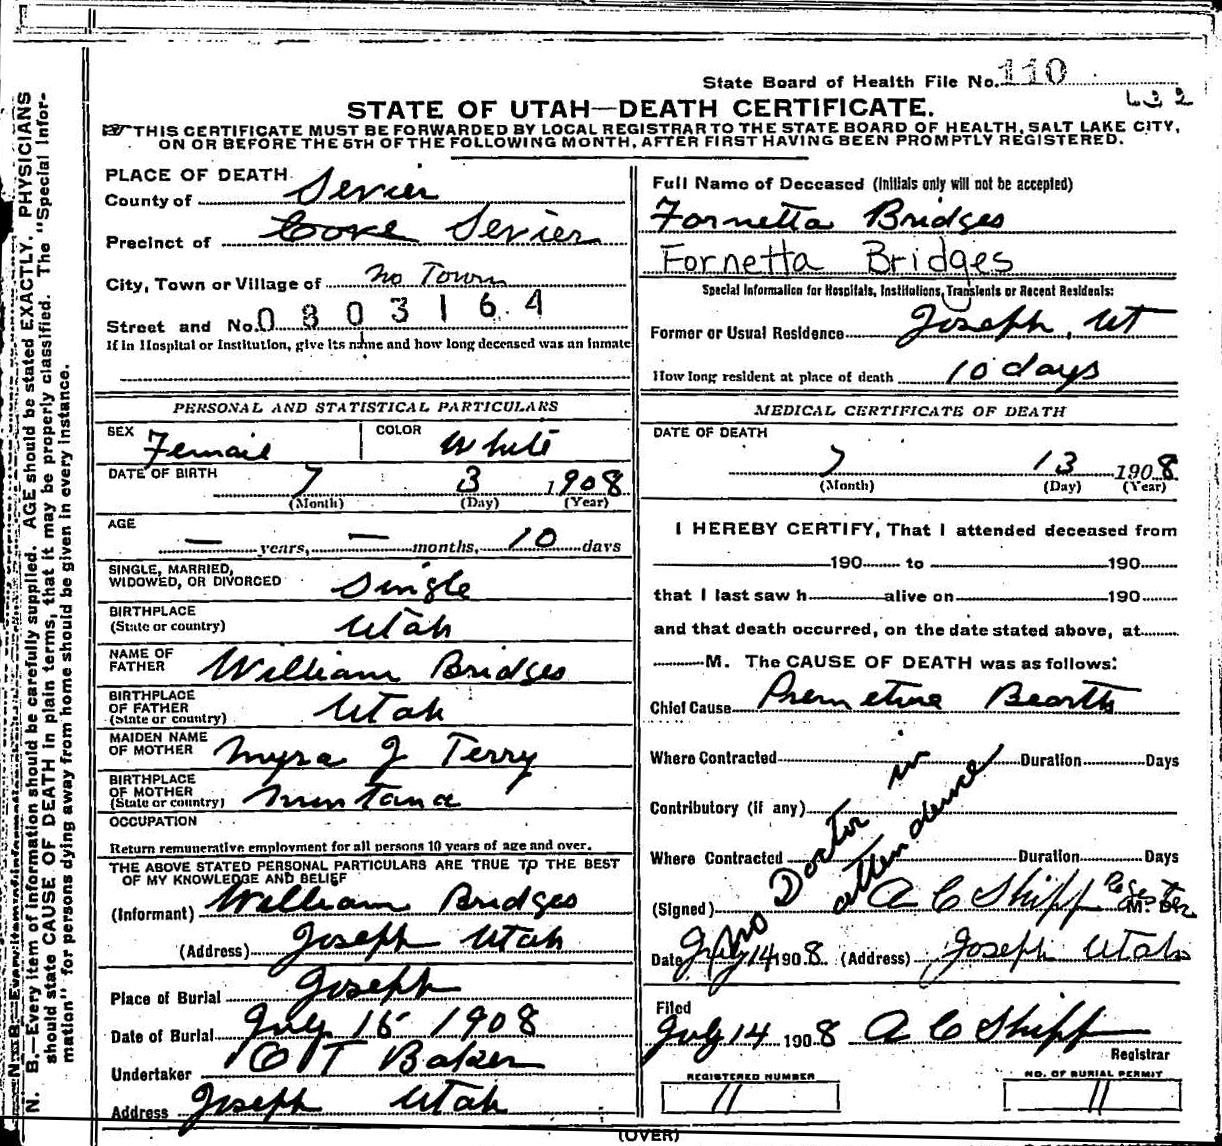 State Board of Health File No. 110
632
STATE OF UTAH—DEATH CERTIFICATE.
THIS CERTIFICATE MUST BE FORWARDED BY LOCAL REGISTRAR TO THE STATE BOARD OF HEALTH, SALT LAKE CITY,
ON OR BEFORE THE 5TH OF THE FOLLOWING MONTH, AFTER FIRST HAVING BEEN PROMPTLY REGISTERED.
N. B.—Every item of Information should be carefully supplied. AGE should be stated EXACTLY. PHYSICIANS
should state CAUSE OF DEATH in plain terms, that it may be properly classified. The "Special Infor-
mation" for persons dying away from home should be given in every instance.
PLACE OF DEATH
County of Sevier
Precinct of Cove Sevier
City, Town or Village of no Town
Street and No. 0803164
If in Hospital or Institution, give its name and how long deceased was an inmate
PERSONAL AND STATISTICAL PARTICULARS
SEX Femail COLOR White
DATE OF BIRTH 7 3 1908
(Month) (Day) (Year)
AGE
— years, — months, 10 days
SINGLE, MARRIED,
WIDOWED, OR DIVORCED Single
BIRTHPLACE
(State or country) Utah
NAME OF
FATHER William Bridges
BIRTHPLACE
OF FATHER
(State or country) Utah
MAIDEN NAME
OF MOTHER Myra J Terry
BIRTHPLACE
OF MOTHER
(State or country) Muntana
OCCUPATION
Return remunerative employment for all persons 10 years of age and over.
THE ABOVE STATED PERSONAL PARTICULARS ARE TRUE TO THE BEST
OF MY KNOWLEDGE AND BELIEF
(Informant) William Bridges
(Address) Joseph Utah
Place of Burial Joseph
Date of Burial July 15 1908
Undertaker O T Baker
Address Joseph Utah
Full Name of Deceased (Initials only will not be accepted)
Fornetta Bridges
Fornetta Bridges
Special Information for Hospitals, Institutions, Transients or Recent Residents:
Former or Usual Residence Joseph, Ut
How long resident at place of death 10 days
MEDICAL CERTIFICATE OF DEATH
DATE OF DEATH
7 13 1908
(Month) (Day) (Year)
I HEREBY CERTIFY, That I attended deceased from
190 to 190
that I last saw h alive on 190
and that death occurred, on the date stated above, at
M. The CAUSE OF DEATH was as follows:
Chief Cause Premeture Bearth
Where Contracted Duration Days
Contributory (if any)
Where Contracted Duration Days
No Doctor in
attendence
(Signed) A C Shipp Regester M. D.
Date July 14 1908 (Address) Joseph Utah
Filed
July 14 1908 A C Shipp
Registrar
REGISTERED NUMBER NO. OF BURIAL PERMIT
11 11
(OVER)